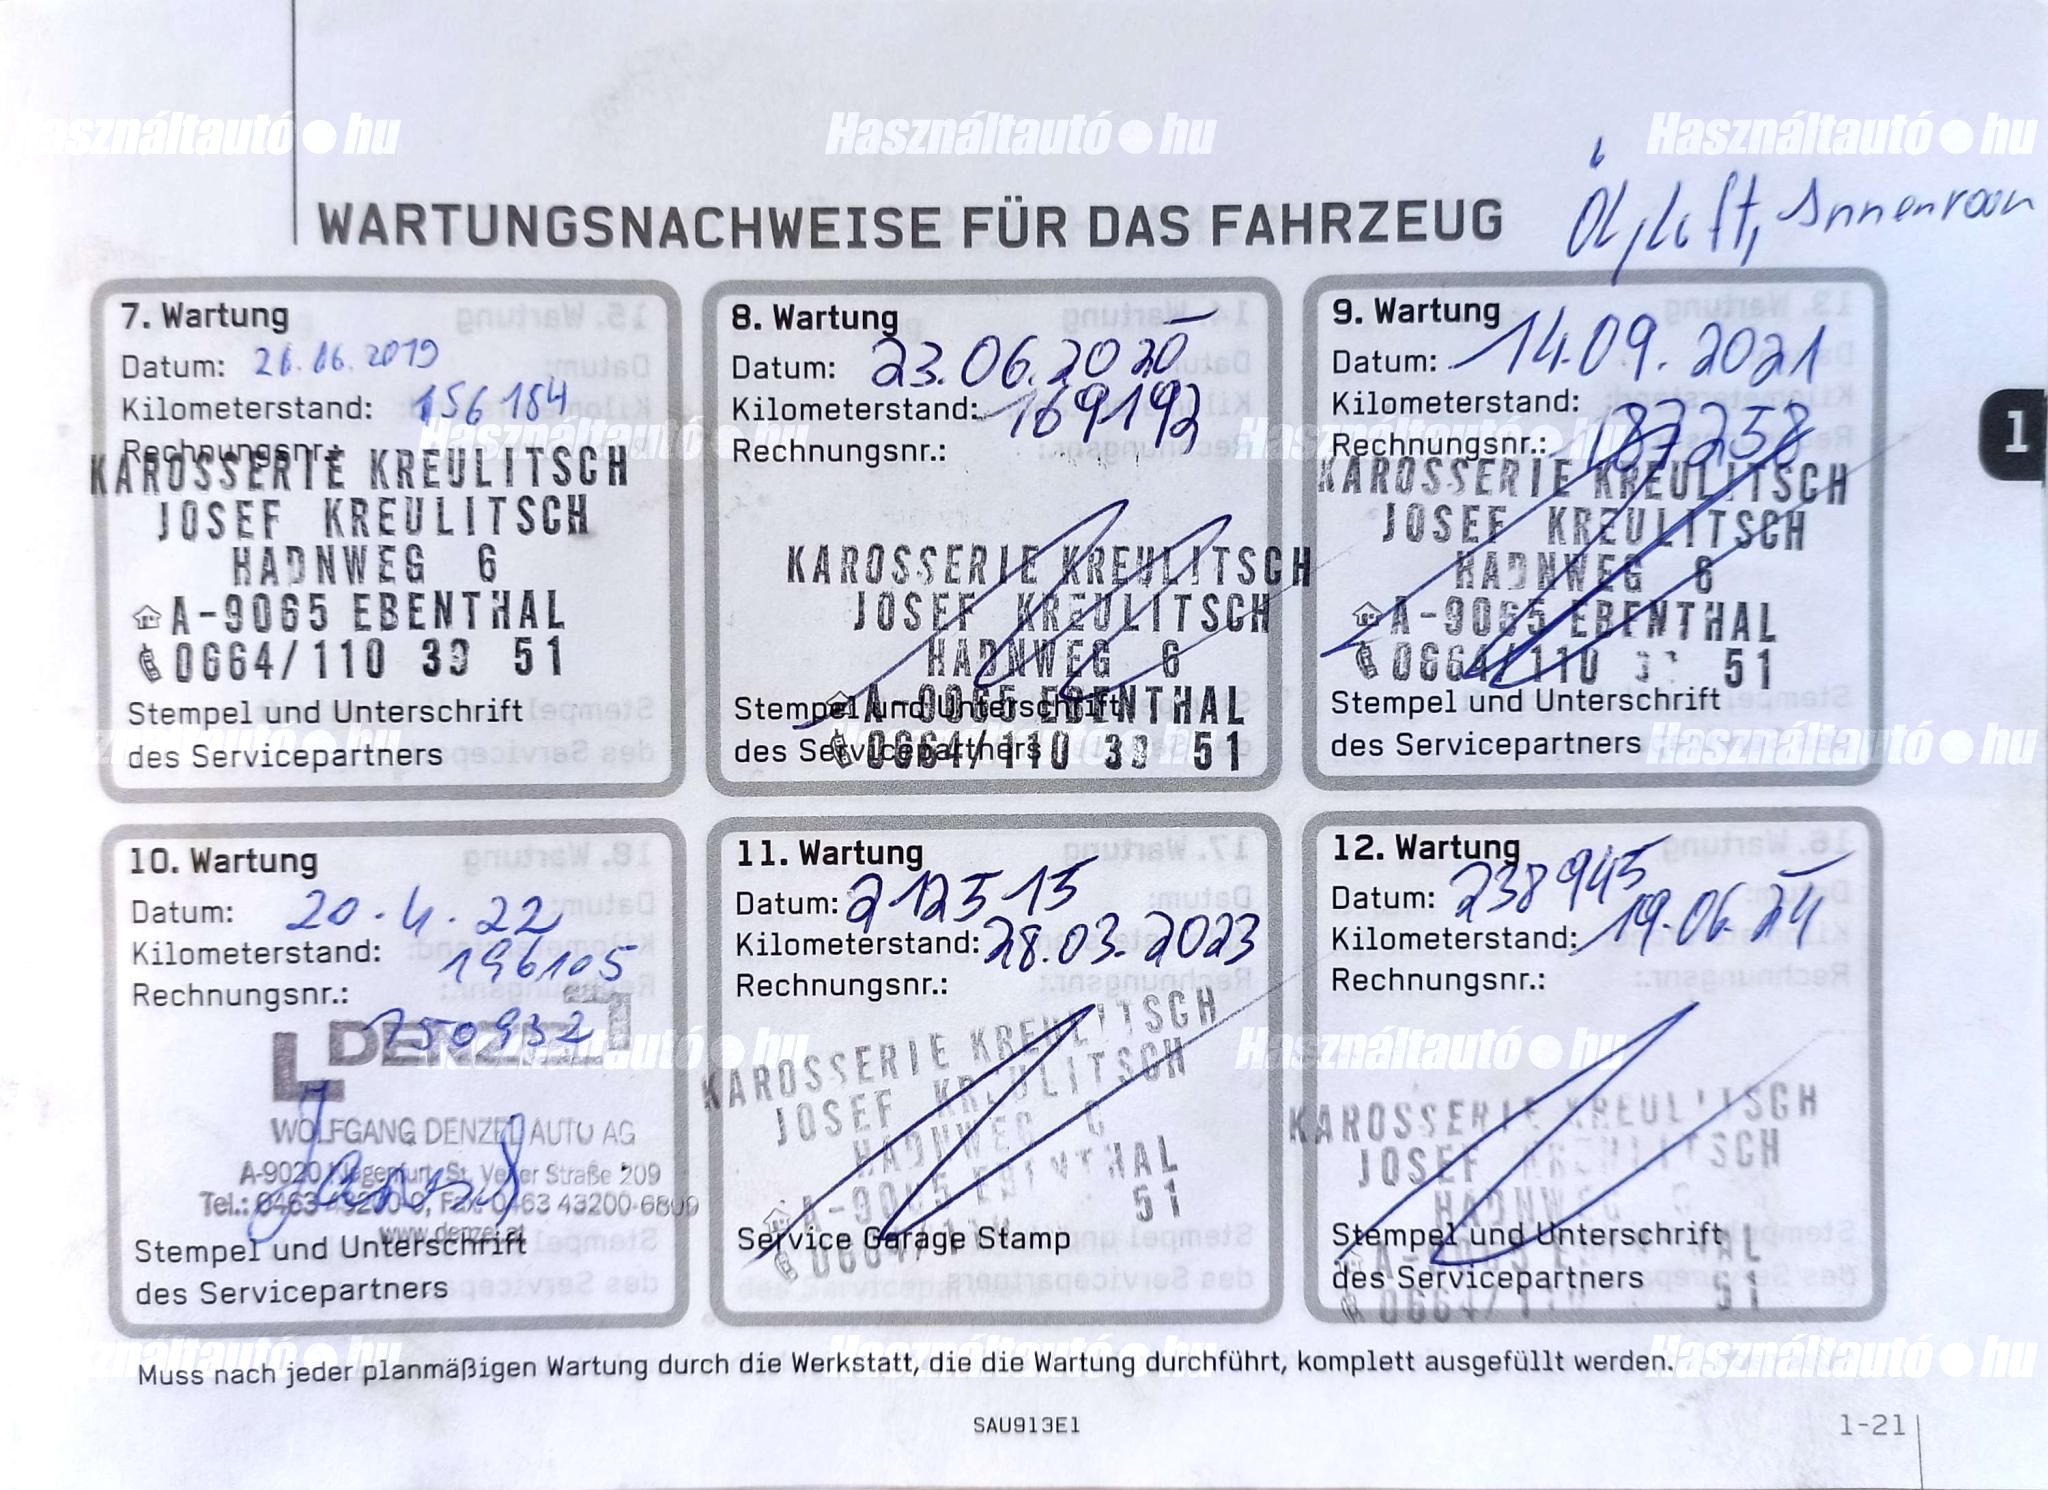 Használtautó.hu Használtautó.hu Használtautó.hu
WARTUNGSNACHWEISE FÜR DAS FAHRZEUG
Öl, Luft, Innenraum
7. Wartung
Datum: 26.06.2019
Kilometerstand: 156184
Rechnungsnr.:
KAROSSERIE KREULITSCH
JOSEF KREULITSCH
HADNWEG 6
A-9065 EBENTHAL
0664/110 39 51
Stempel und Unterschrift
des Servicepartners
8. Wartung
Datum: 23.06.2020
Kilometerstand: 169192
Rechnungsnr.:
KAROSSERIE KREULITSCH
JOSEF KREULITSCH
HADNWEG 6
A-9065 EBENTHAL
0664/110 39 51
Stempel und Unterschrift
des Servicepartners
9. Wartung
Datum: 14.09.2021
Kilometerstand: 187258
Rechnungsnr.:
KAROSSERIE KREULITSCH
JOSEF KREULITSCH
HADNWEG 6
A-9065 EBENTHAL
0664/110 39 51
Stempel und Unterschrift
des Servicepartners
1
10. Wartung
Datum: 20.4.22
Kilometerstand: 196105
Rechnungsnr.:
750932
DENZEL
WOLFGANG DENZEL AUTO AG
A-9020 Klagenfurt, St. Veiter Straße 209
Tel.: 0463 43200-0, Fax: 0463 43200-6809
www.denzel.at
Stempel und Unterschrift
des Servicepartners
11. Wartung
Datum: 212515
Kilometerstand: 28.03.2023
Rechnungsnr.:
KAROSSERIE KREULITSCH
JOSEF KREULITSCH
HADNWEG 6
A-9065 EBENTHAL
0664/110 51
Service Garage Stamp
12. Wartung
Datum: 238945
Kilometerstand: 19.06.24
Rechnungsnr.:
KAROSSERIE KREULITSCH
JOSEF KREULITSCH
HADNWEG 6
A-9065 EBENTHAL
0664/110 51
Stempel und Unterschrift
des Servicepartners
Muss nach jeder planmäßigen Wartung durch die Werkstatt, die die Wartung durchführt, komplett ausgefüllt werden.
SAU913E1
1-21